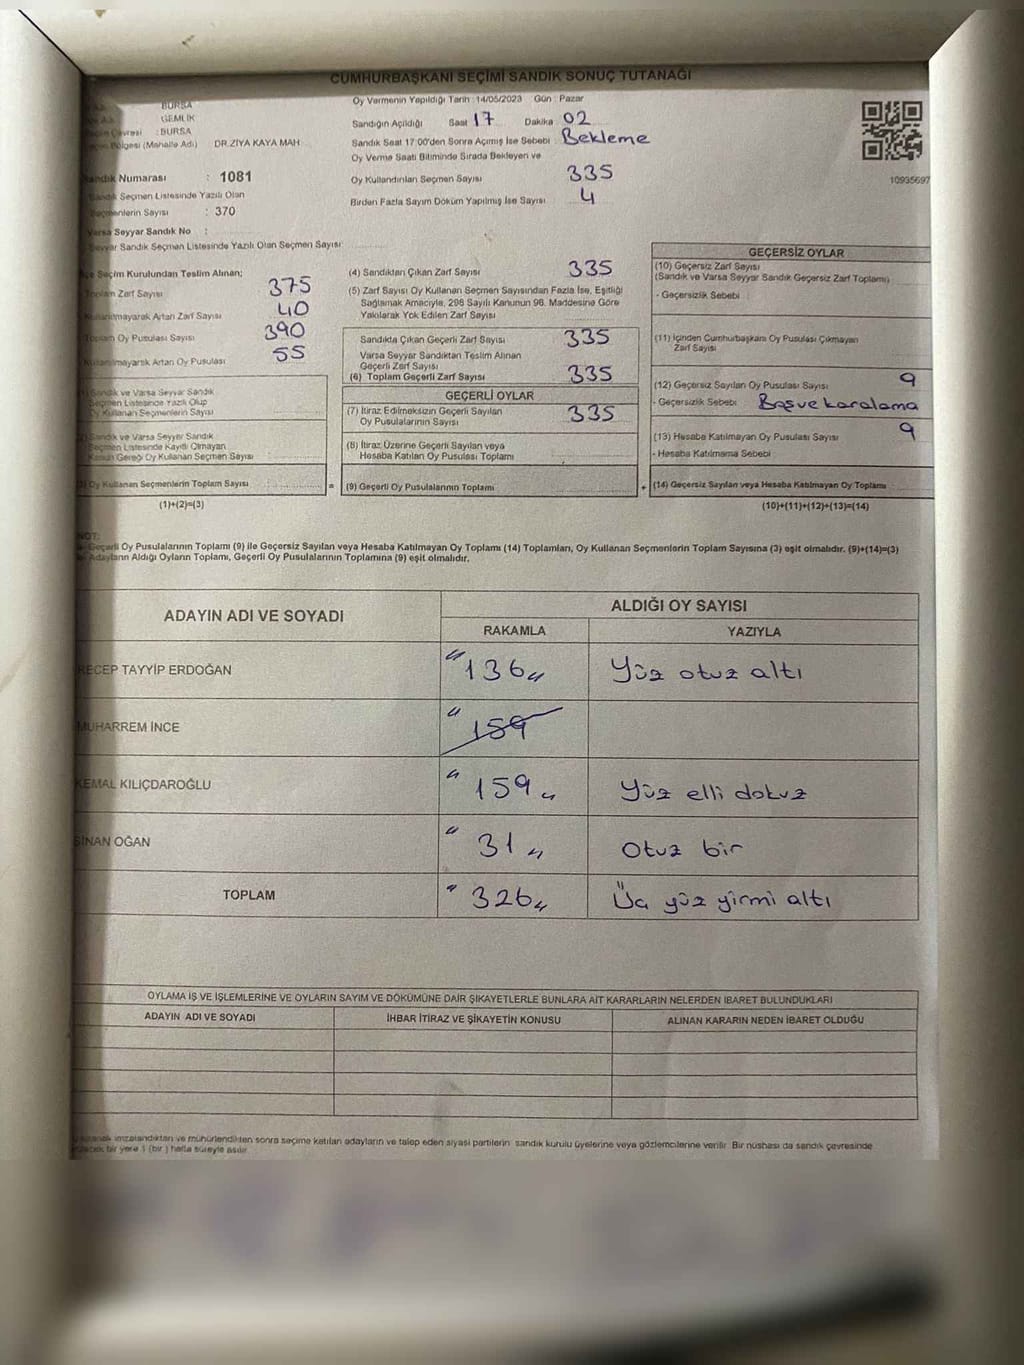 CUMHURBAŞKANI SEÇİMİ SANDIK SONUÇ TUTANAĞI
BURSA
GEMLİK
: BURSA
Bölgesi (Mahalle Adı) DR.ZİYA KAYA MAH.
Sandık Numarası : 1081
Sandık Seçmen Listesinde Yazılı Olan
Seçmenlerin Sayısı : 370
Varsa Seyyar Sandık No :
Seyyar Sandık Seçmen Listesinde Yazılı Olan Seçmen Sayısı:
Oy Vermenin Yapıldığı Tarih : 14/05/2023 Gün : Pazar
Sandığın Açıldığı Saat 17 Dakika 02
Sandık Saat 17:00'den Sonra Açımış İse Sebebi : Bekleme
Oy Verme Saati Bitiminde Sırada Bekleyen ve
Oy Kullandırılan Seçmen Sayısı 335
Birden Fazla Sayım Döküm Yapılmış İse Sayısı 4
10935697
İlçe Seçim Kurulundan Teslim Alınan;
Toplam Zarf Sayısı 375
Kullanılmayarak Artan Zarf Sayısı 40
Toplam Oy Pusulası Sayısı 390
Kullanılmayarak Artan Oy Pusulası 55
(1) Sandık ve Varsa Seyyar Sandık
Seçmen Listesinde Yazılı Olup
Oy Kullanan Seçmenlerin Sayısı
(2) Sandık ve Varsa Seyyar Sandık
Seçmen Listesinde Kayıtlı Olmayan
Kanun Gereği Oy Kullanan Seçmen Sayısı
(3) Oy Kullanan Seçmenlerin Toplam Sayısı =
(1)+(2)=(3)
(4) Sandıktan Çıkan Zarf Sayısı 335
(5) Zarf Sayısı Oy Kullanan Seçmen Sayısından Fazla İse, Eşitliği
Sağlamak Amacıyla, 298 Sayılı Kanunun 98. Maddesine Göre
Yakılarak Yok Edilen Zarf Sayısı
Sandıkta Çıkan Geçerli Zarf Sayısı 335
Varsa Seyyar Sandıktan Teslim Alınan
Geçerli Zarf Sayısı
(6) Toplam Geçerli Zarf Sayısı 335
GEÇERLİ OYLAR
(7) İtiraz Edilmeksizin Geçerli Sayılan
Oy Pusulalarının Sayısı 335
(8) İtiraz Üzerine Geçerli Sayılan veya
Hesaba Katılan Oy Pusulası Toplamı
(9) Geçerli Oy Pusulalarının Toplamı +
GEÇERSİZ OYLAR
(10) Geçersiz Zarf Sayısı
(Sandık ve Varsa Seyyar Sandık Geçersiz Zarf Toplamı)
- Geçersizlik Sebebi :
(11) İçinden Cumhurbaşkanı Oy Pusulası Çıkmayan
Zarf Sayısı
(12) Geçersiz Sayılan Oy Pusulası Sayısı 9
- Geçersizlik Sebebi Boş ve karalama
(13) Hesaba Katılmayan Oy Pusulası Sayısı 9
- Hesaba Katılmama Sebebi
(14) Geçersiz Sayılan veya Hesaba Katılmayan Oy Toplamı
(10)+(11)+(12)+(13)=(14)
NOT:
Geçerli Oy Pusulalarının Toplamı (9) ile Geçersiz Sayılan veya Hesaba Katılmayan Oy Toplamı (14) Toplamları, Oy Kullanan Seçmenlerin Toplam Sayısına (3) eşit olmalıdır. (9)+(14)=(3)
Adayların Aldığı Oyların Toplamı, Geçerli Oy Pusulalarının Toplamına (9) eşit olmalıdır.
ADAYIN ADI VE SOYADI ALDIĞI OY SAYISI
RAKAMLA YAZIYLA
RECEP TAYYİP ERDOĞAN "136" Yüz otuz altı
MUHARREM İNCE " 159
KEMAL KILIÇDAROĞLU "159" Yüz elli dokuz
SİNAN OĞAN "31" Otuz bir
TOPLAM "326" Üç yüz yirmi altı
OYLAMA İŞ VE İŞLEMLERİNE VE OYLARIN SAYIM VE DÖKÜMÜNE DAİR ŞİKAYETLERLE BUNLARA AİT KARARLARIN NELERDEN İBARET BULUNDUKLARI
ADAYIN ADI VE SOYADI İHBAR İTİRAZ VE ŞİKAYETİN KONUSU ALINAN KARARIN NEDEN İBARET OLDUĞU
imzalandıktan ve mühürlendikten sonra seçime katılan adayların ve talep eden siyasi partilerin sandık kurulu üyelerine veya gözlemcilerine verilir. Bir nüshası da sandık çevresinde
bir yere 1 (bir) hafta süreyle asılır.